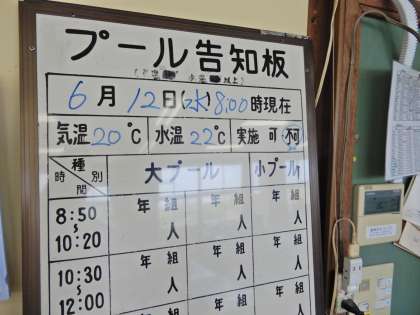 プール告知板
6月12日(水)8:00時現在
気温20℃ 水温22℃ 実施 可 不可
種別 時間 大プール 小プール
8:50 ~ 10:20 年 組 人 年 組 人 年 人
10:30 ~ 12:00 年 組 人 年 組 人 年 人
年 組 年 組 年